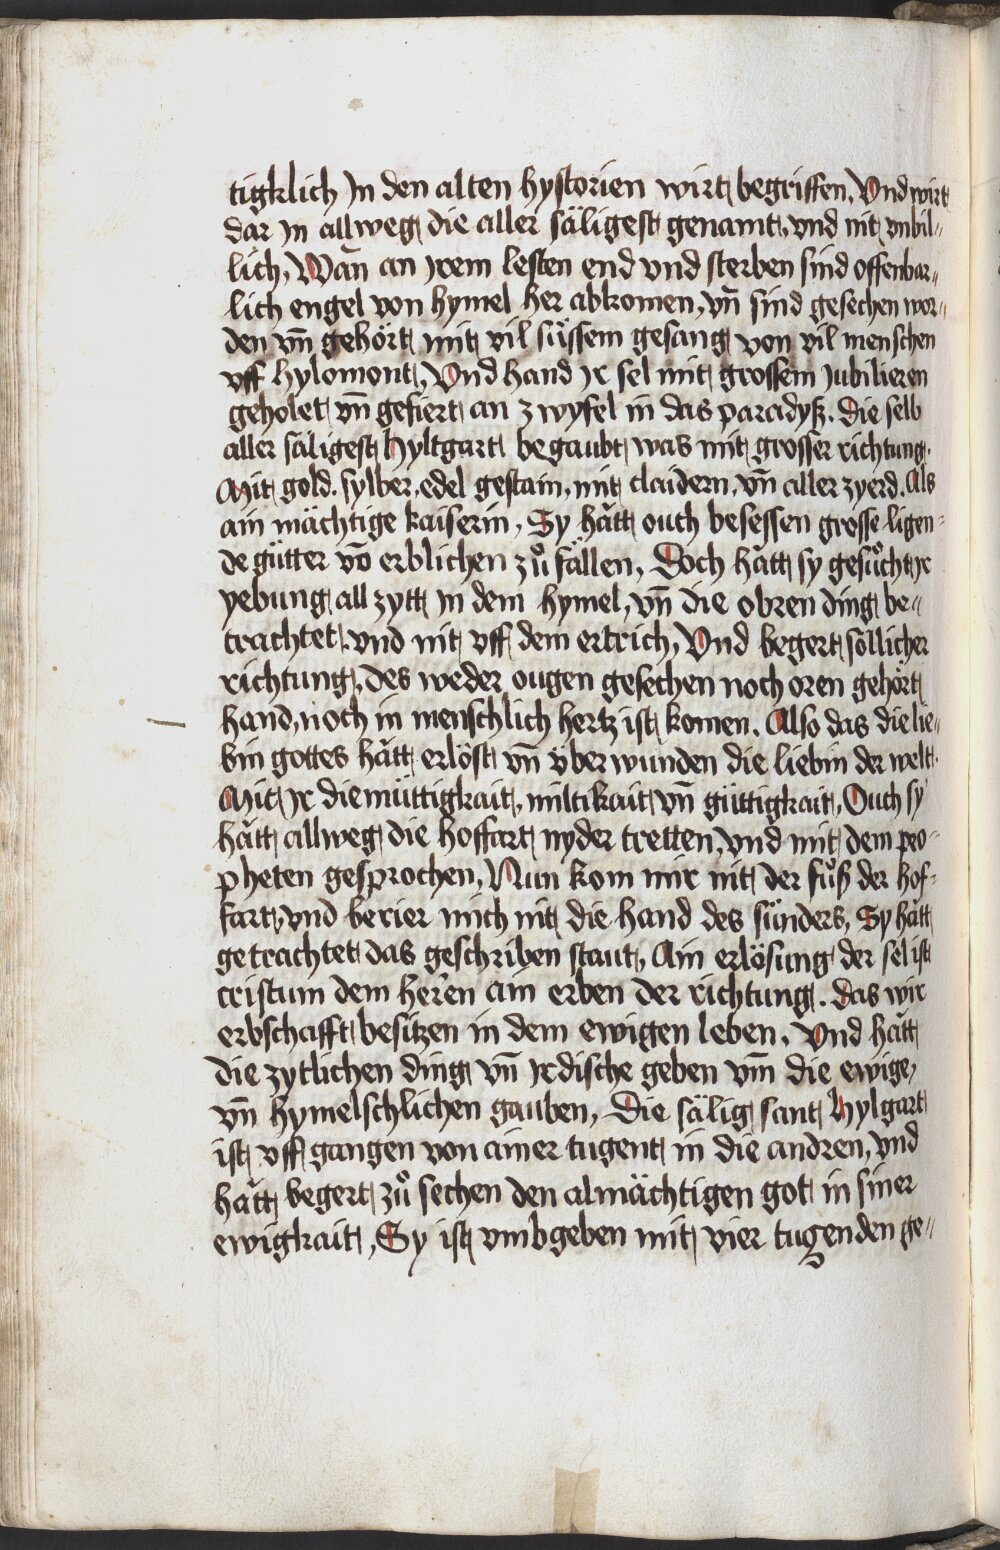 tigklich Jn den alten hystorien wirt begriffen, Vnd wirt
dar Jn allweg die aller säligest genamt, vnd nit vnbil„
lich, Wan̄ an jrem lesten end vnd sterben sind offenbar„
lich engel von hymel her abkomen, vn̄ sind gesechen wor„
den vn̄ gehört mit vil süssem gesang von vil menschen
vff hylomont, Vnd hand jr sel mit grossem Jubilieren
geholet vn̄ gefiert an zwyfel in das paradyß. Die selb
aller säligest Hyltgart begaubt was mit grosser richtung.
Mit gold. sylber, edel gestain, mit claidern, vn̄ aller zyerd. Als
ain mächtige kaiserin, Sy hătt ouch besessen grosse ligen„
de gütter vō erblichen zů fällen, Doch hătt sy gesůcht jr
yebung all zytt jn dem hymel, vn̄ die obren ding be„
trachtet. vnd nit vff dem ertrich, Vnd begert söllicher
richtung, des weder ougen gesechen noch oren gehört
hand, noch in menschlich hertz ist komen. Also das die lie„
bin gottes hătt erlöst vn̄ über wunden die liebin der welt.
Mit jr diemüttigkait, miltikait vn̄ güttigkait, Ouch sy
hătt allweg die hoffart nyder tretten, vnd mit dem pro„
pheten gesprochen, Nun kom mir nit der fůß der hof„
fart, vnd berier mich nit die hand des sünders, Sy hătt
getrachtet das geschriben staut, Ain erlösung der sel ist
cristum dem herren ain erben der richtung. Das wir
erbschafft besitzen in dem ewigen leben. Vnd hătt
die zytlichen ding vn̄ jrdische geben vm̄ die ewige,
vn̄ hymelschlichen gauben, Die sälig sant Hylgart
ist vff gangen von ainer tugent in die andren, vnd
hătt begert zů sechen den almächtigen got in siner
ewigkait, Sy ist vmbgeben mit vier tugenden ge„